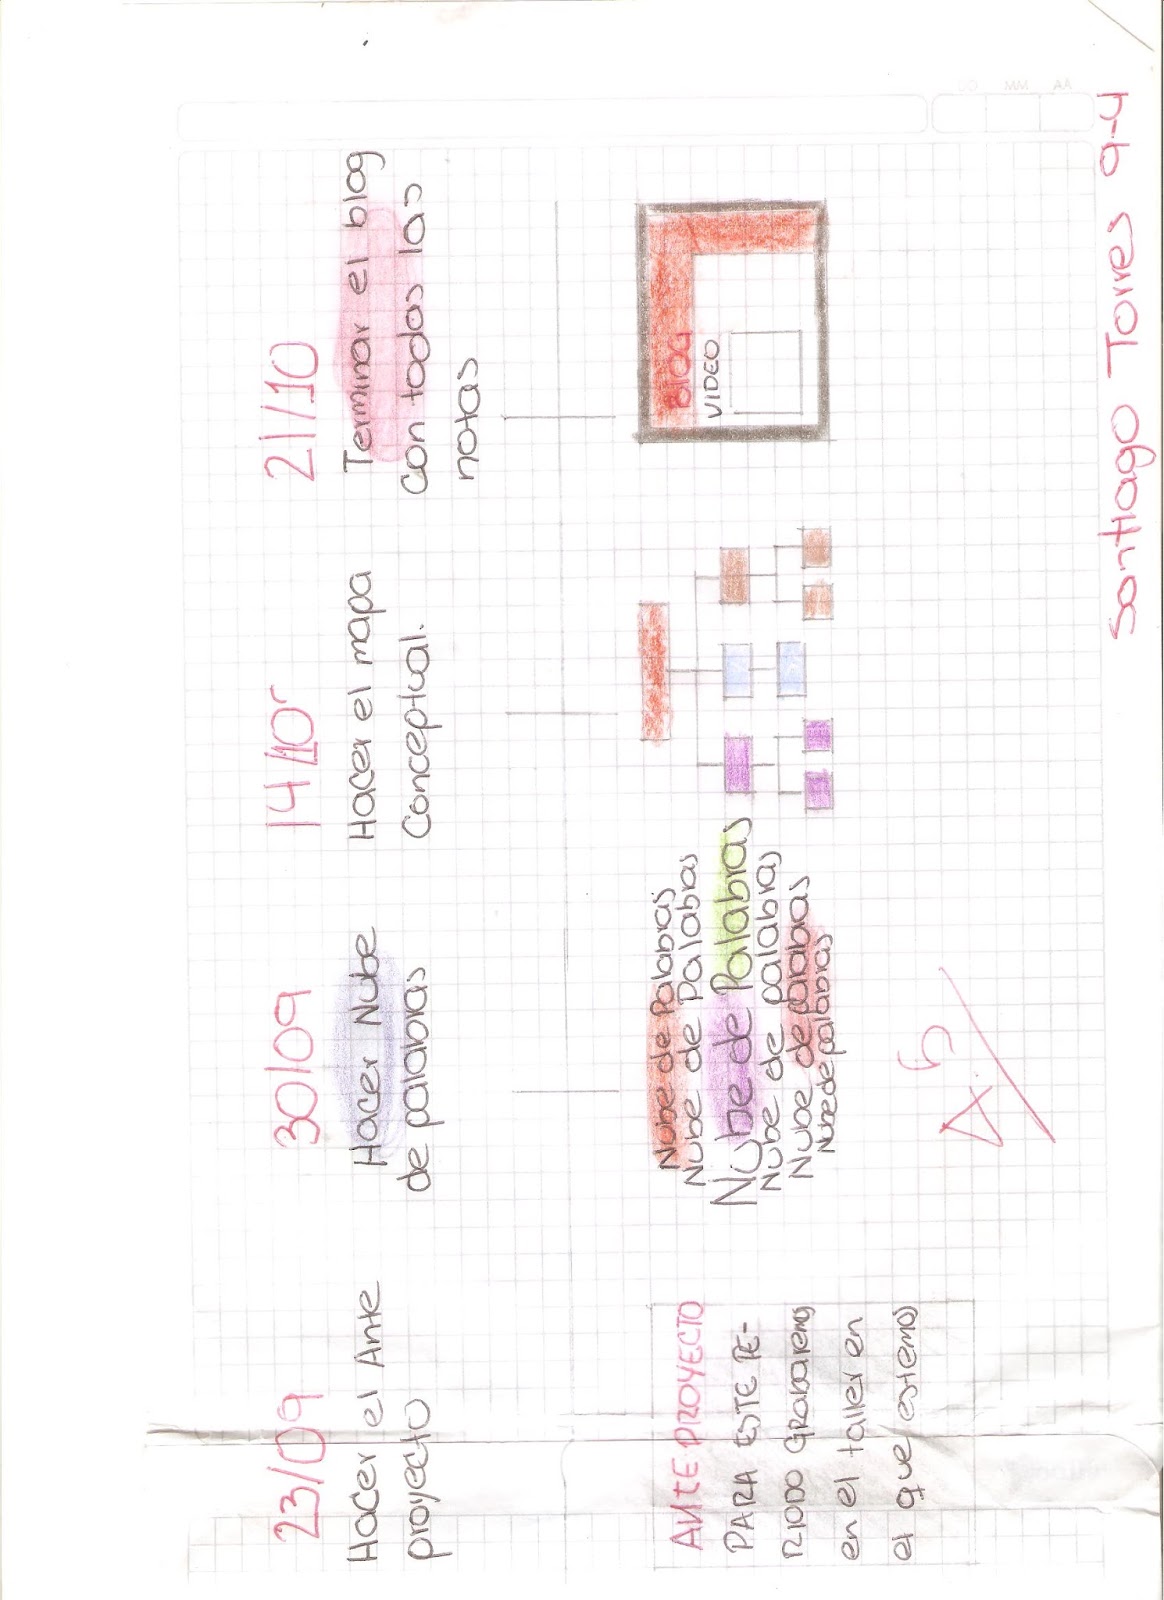 23/09
Hacer el Ante
proyecto
30/09
Hacer Nube
de palabras
14/10
Hacer el mapa
Conceptual.
21/10
Terminar el blog
con todas las
notas
ANTE PROYECTO
PARA ESTE PE-
RIODO GRabaremos
en el taller en
el que estemos
Nube de Palabras
Nube de Palabras
Nube de Palabras
Nube de palabras
Nube de palabras
Nube de palabras
BLOG
VIDEO
4.5
Santiago Torres 9-4
AA MM DD